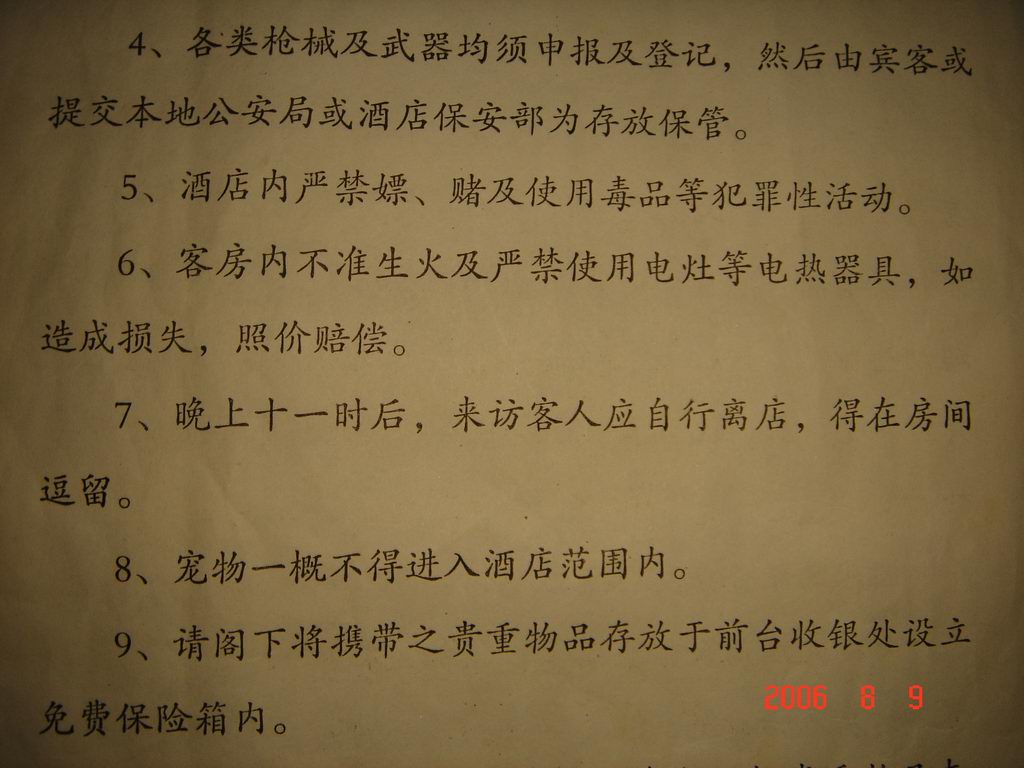 4、各类枪械及武器均须申报及登记，然后由宾客或
提交本地公安局或酒店保安部为存放保管。
5、酒店内严禁嫖、赌及使用毒品等犯罪性活动。
6、客房内不准生火及严禁使用电灶等电热器具，如
造成损失，照价赔偿。
7、晚上十一时后，来访客人应自行离店，得在房间
逗留。
8、宠物一概不得进入酒店范围内。
9、请阁下将携带之贵重物品存放于前台收银处设立
免费保险箱内。
2006 8 9